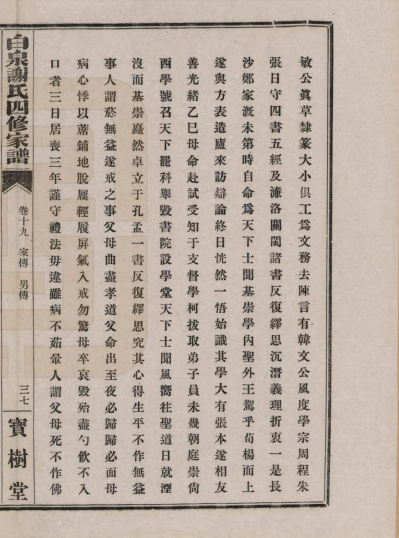 敏公眞草隸篆大小俱工爲文務去陳言有韓文公風度學宗周程朱
張日守四書五經及濂洛關閩諸書反復繹思沉潛義理折衷一是長
沙鄭家溉未第時自命爲天下士聞基崇學內聖外王駕乎荀楊而上
遂與方表遣廬來訪辯論終日恍然一悟始識其學大有張本遂相友
善光緖乙巳母命赴試受知于支督學柯拔取弟子員未幾朝庭崇尙
西學號召天下罷科舉毀書院設學堂天下士聞風嚮往聖道日就湮
沒而基崇巋然卓立于孔孟一書反復繹思究其心得生平不作無益
事人謂菸無益遂戒之事父母曲盡孝道父命出至夜必歸歸必面母
病心悸以蓆鋪地脫屨輕履屛氣入戒勿驚母卒哀毀殆盡勺飮不入
口者三日居喪三年謹守禮法毋違雖病不茹葷人謂父母死不作佛
白泉謝氏四修家譜
卷十九 家傳 男傳
三七
寶樹堂